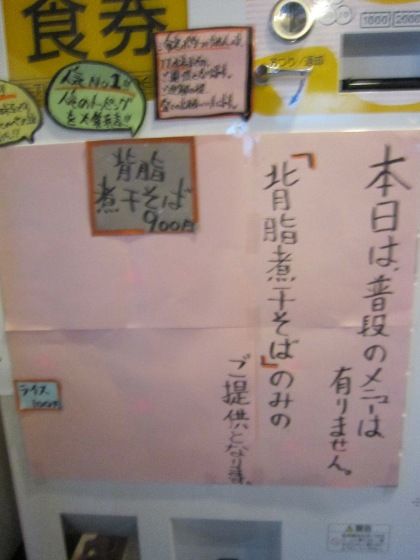 食券
1000 2000
おつり/返却
人気No.1!!
人気のトッピング
を大盛に!!
本日は、普段のメニューは
有りません。
「背脂煮干そば」のみの
ご提供となります。
背脂
煮干そば
900円
ライス
100円
警告